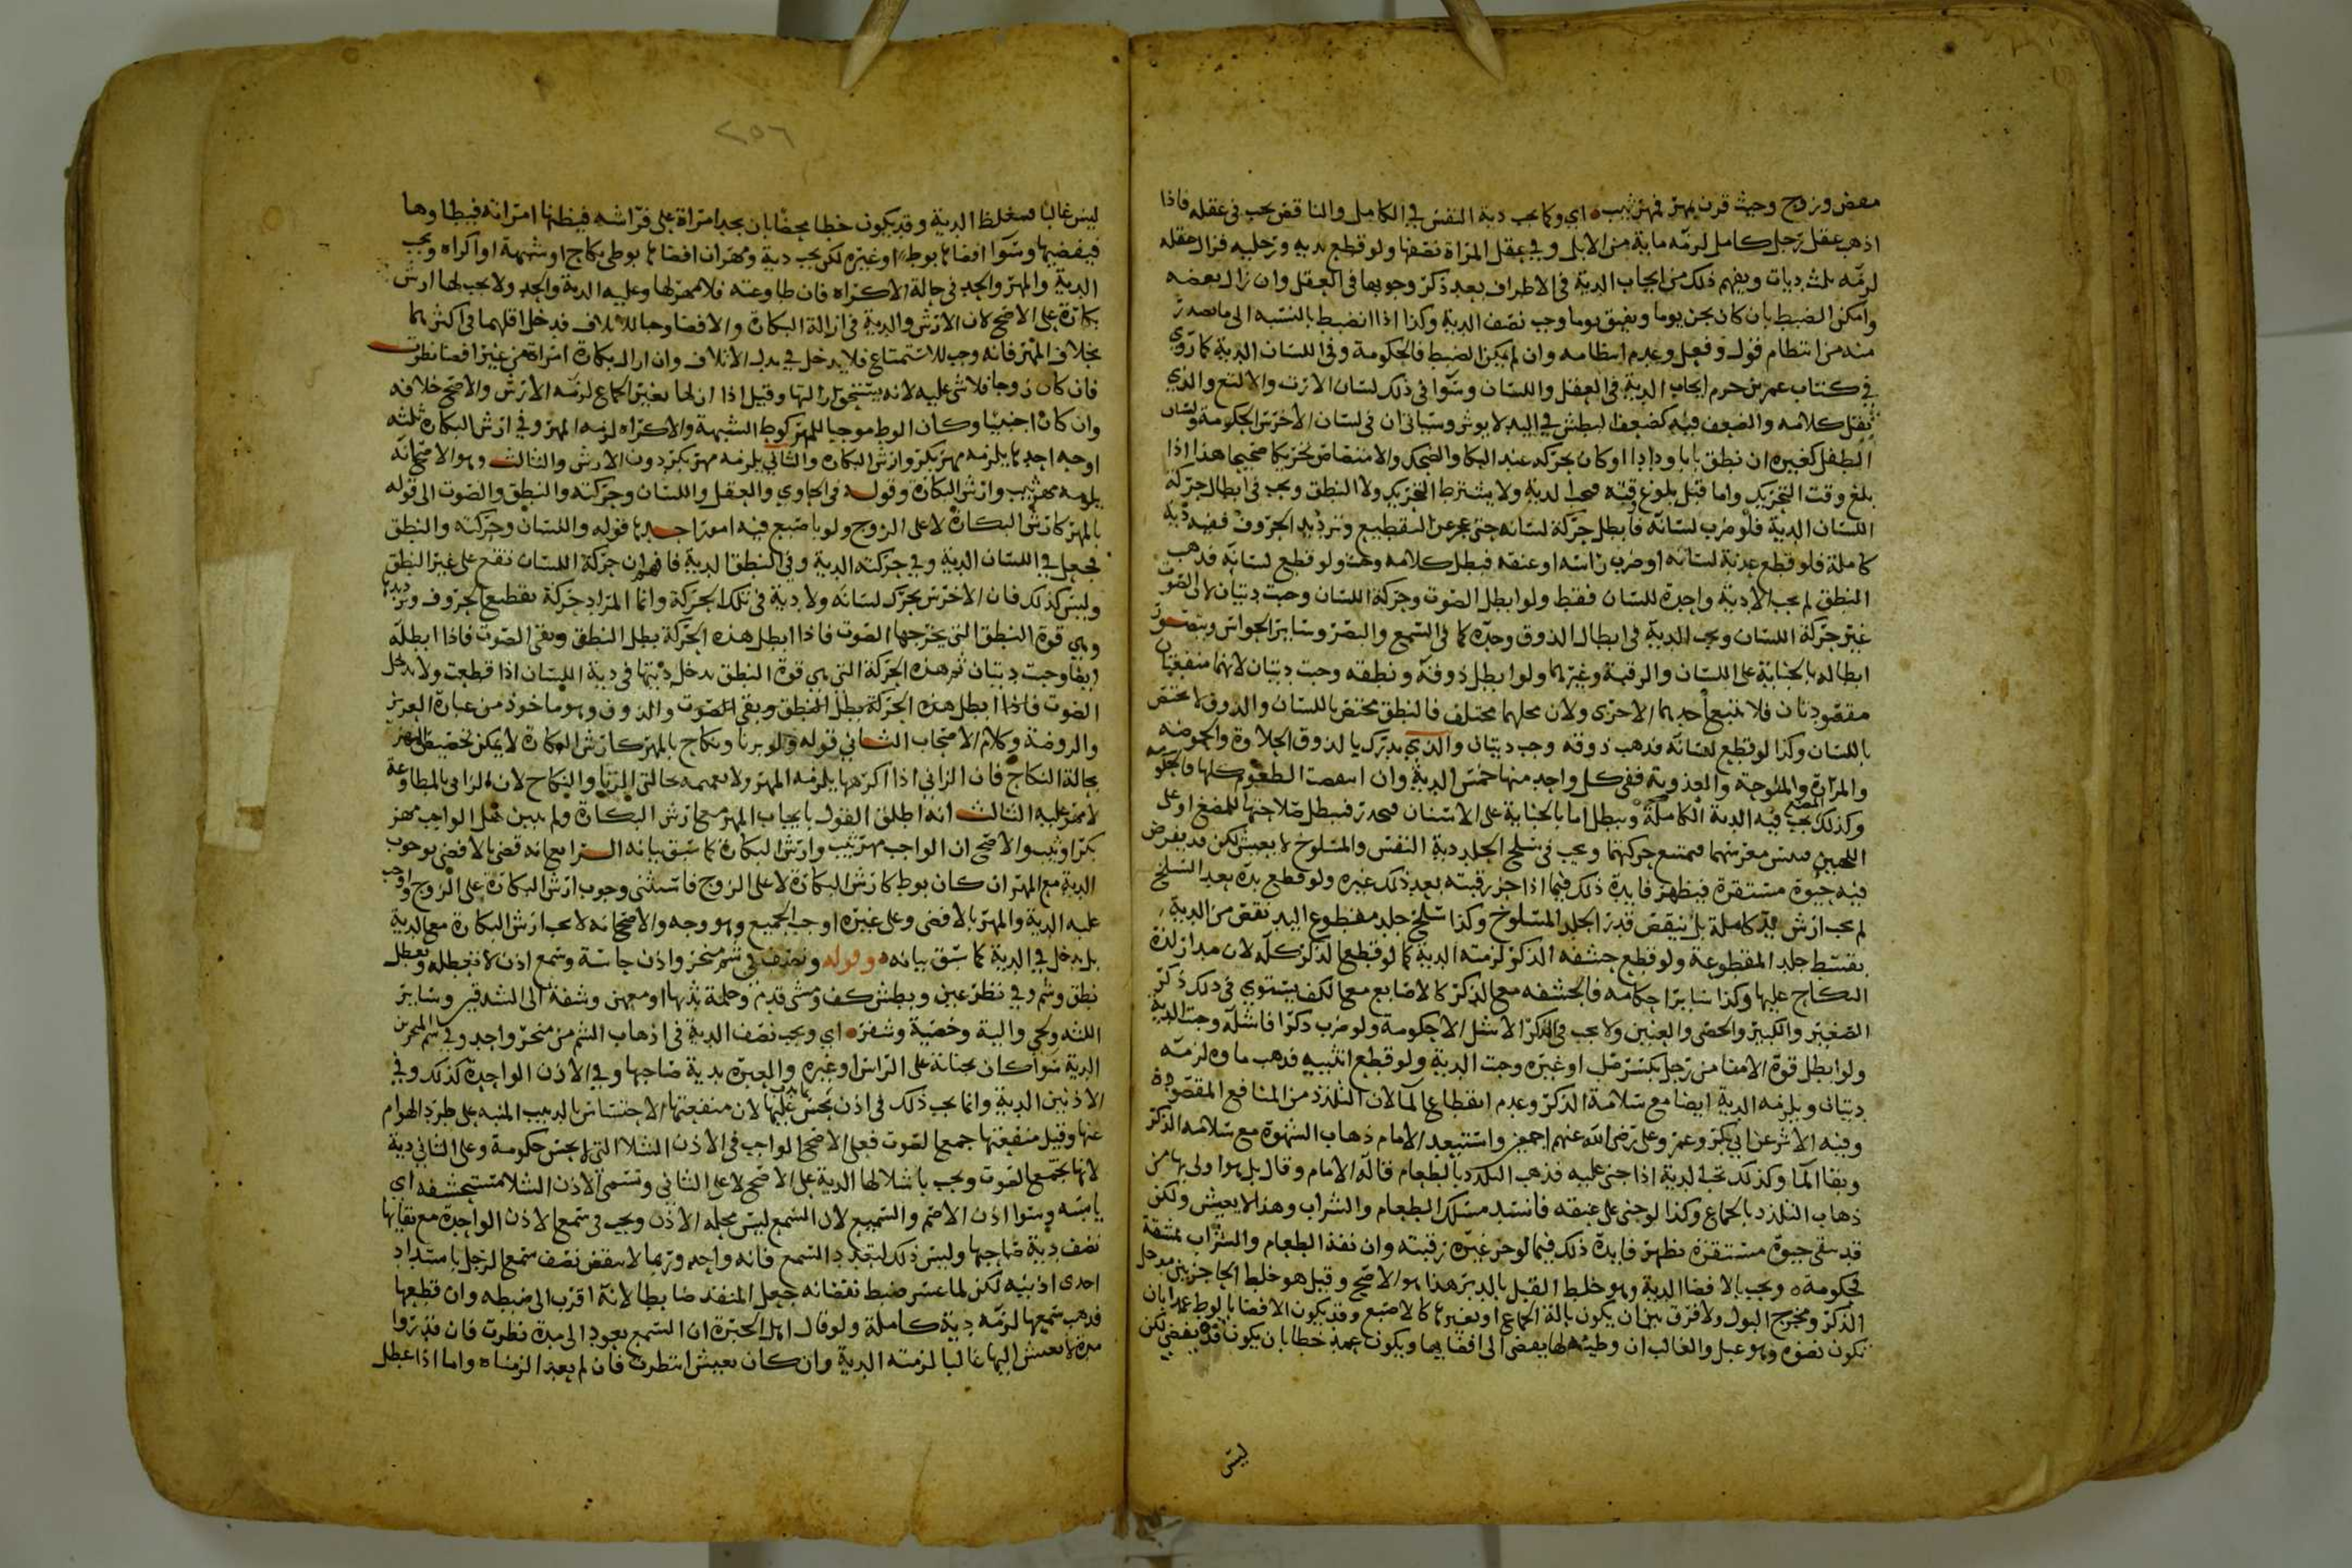 مفض وزوج وحيث قرن بمهر فمهر ثيب اي وكما يجب دية النفس في الكامل والناقص يجب في عقله فاذا
اذهب عقل رجل كامل لزمه ماية من الابل وفي عقل المراة نصفها ولو قطع يديه ورجليه فزال عقله
لزمه ثلث ديات ويفهم ذلك من ايجاب الدية في الاطراف بعد ذكر وجوبها في العقل وان زال بعضه
وامكن الضبط بان كان يجن يوما ويفيق يوما وجب نصف الدية وكذا اذا انضبط بالنسبه الى ما يصدر
منه من انتظام قول وفعل وعدم انتظامه وان لم يمكن الضبط فالحكومة وفي اللسان الدية كما روي
في كتاب عمرو بن حزم ايجاب الدية في العقل واللسان وسوا في ذلك لسان الارت والالثغ والذي
ثقل كلامه والضعف فيه كضعف البطش في اليد لا يوثر وسياتي ان في لسان الاخرس الحكومة ولسان
الطفل كغيره ان نطق بابا ودادا او كان يحركه عند البكا والضحك والامتصاص تحريكا صحيحا هذا اذا
بلغ وقت التحريك واما قبل بلوغ وقته فتجب الدية ولا يشترط التحريك ولا النطق ويجب في ابطال حركة
اللسان الدية فلو ضرب لسانه فابطل حركة لسانه حتى عجز عن التقطيع وترديد الحروف ففيه دية
كاملة فلو قطع عذبة لسانه او ضرب راسه او عنقه فبطل كلامه وجبت ولو قطع لسانه فذهب
النطق لم يجب الا دية واحدة للسان فقط ولو ابطل الصوت وحركة اللسان وجبت ديتان لان الصوت
غير حركة اللسان ويجب الدية في ابطال الذوق وحده كما في السمع والبصر وساير الحواس ويتصور
ابطاله بالجناية على اللسان والرقبة وغيرهما ولو ابطل ذوقه ونطقه وجبت ديتان لانهما منفعتان
مقصودتان فلا تتبع احديهما الاخرى ولان محلهما مختلف فالنطق مختص باللسان والذوق لا يختص
باللسان وكذا لو قطع لسانه فذهب ذوقه وجب ديتان والذي يدرك بالذوق الحلاوة والحموضه
والمرارة والملوحة والعذوبة ففي كل واحد منها خمس الدية وان انتقصت الطعوم كلها فالحكومة
وكذلك المضغ يجب فيه الدية الكاملة ويبطل اما بالجناية على الاسنان فتخدر فتبطل صلاحيتها للمضغ او على
اللحيين فيتيبس مغرسهما فيمتنع حركتهما ويجب في سلخ الجلد دية النفس والمسلوخ لا يعيش لكن قد يفرض
فيه حيوة مستقرة فيظهر فايدة ذلك فيما اذا جز رقبته بعد ذلك غيره ولو قطع يده بعد السلخ
لم يجب ارش يد كاملة بل ينقص قدر الجلد المسلوخ وكذا سلخ جلد مقطوع اليد نقص من الدية
بقسط جلد المقطوعة ولو قطع حشفه الذكر لزمته الدية كما لو قطع الذكر كله لان مدار لذة
النكاح عليها وكذا ساير احكامه فالحشفه مع الذكر كالاصابع مع الكف يستوي في ذلك ذكر
الصغير والكبير والخصي والعنين ولا يجب في الذكر الاشل الا حكومة ولو ضرب ذكرا فاشله وجبت الدية
ولو ابطل قوة الامنا من رجل بكسر صلب او غيره وجبت الدية ولو قطع انثييه فذهب ماوه لزمته
ديتان ويلزمه الدية ايضا مع سلامة الذكر وعدم انقطاع الما لان التلذذ من المنافع المقصودة
وفيه الاثر عن ابي بكر وعمر وعلي رضي الله عنهم اجمعين واستبعد الامام ذهاب الشهوة مع سلامه الذكر
وبقا الما وكذلك تجب الدية اذا جنى عليه فذهب التلذذ بالطعام قاله الامام وقال بل هو اولى بها من
ذهاب التلذذ بالجماع وكذا لو جنى على عنقه فانسد مسلك الطعام والشراب وهذا لا يعيش ولكن
قد يبقى حيوة مستقرة يظهر فايدة ذلك فيما لو حز غيره رقبته وان نفذ الطعام والشراب بمشقة
فحكومة ويجب بالافضا الدية وهو خلط القبل بالدبر هذا هو الاصح وقيل هو خلط الحاجز بين مدخل
الذكر ومخرج البول ولا فرق بين ان يكون بالة الجماع او بغيرها كالاصبع وقد يكون الافضا بالوطء عمدا بان
تكون نضوه وهو عبل والغالب ان وطيه لها يفضي الى افضايها ويكون عمد خطا بان يكون قد يفضي لكن
ليس
٢٥٦
ليس غالبا فتغلظ الدية وقد يكون خطا محضا بان يجد امراة على فراشه فيظنها امراته فيطاوها
فيفضيها وسوا افضاها بوطء او غيره لكن يجب دية ومهر ان افضاها بوطي نكاح او شبهة او اكراه ويجب
الدية والمهر والحد في حالة الاكراه فان طاوعته فلا مهر لها وعليه الدية والحد ولا يجب لها ارش
بكارة على الاصح لان الارش والدية في ازالة البكارة والافضا وجبا للاتلاف فدخل اقلهما في اكثرهما
بخلاف المهر فانه وجب للاستمتاع فلا يدخل في بدل الاتلاف وان ازال بكارة امراة من غير افضا نظرت
فان كان زوجا فلا شي عليه لانه يستحق ازالتها وقيل اذا ازالها بغير الجماع لزمه الارش والاصح خلافه
وان كان اجنبيا وكان الوطي موجبا للمهر كوطي الشبهة والاكراه لزمه المهر وفي ارش البكاره ثلثه
اوجه احدها يلزمه مهر بكر وارش البكاره والثاني يلزمه مهر بكر دون الارش والثالث وهو الاصح انه
يلزمه مهر ثيب وارش البكارة وقوله في الحاوي والعقل واللسان وحركته والنطق والصوت الى قوله
بالمهر كارش البكارة لا على الزوج ولو باصبع فيه امور احدها قوله واللسان وحركته والنطق
فجعل في اللسان الدية وفي حركته الدية وفي النطق الدية فافهم ان حركة اللسان تقع على غير النطق
وليس كذلك فان الاخرس يحرك لسانه ولا دية في تلك الحركة وانما المراد حركة تقطيع الحروف وترديدها
وهي قوة النطق التي يخرجها الصوت فاذا ابطل هذه الحركة بطل النطق وبقي الصوت فاذا ابطله
ايضا وجبت ديتان ثم هذه الحركة التي هي قوة النطق يدخل ديتها في دية اللسان اذا قطعت ولا يدخل
الصوت فاذا ابطل هذه الحركة بطل النطق وبقي الصوت والذوق وهو ماخوذ من عبارة العزيز
والروضة وكلام الاصحاب الثاني قوله ولو بزنا ونكاح بالمهر كارش البكارة لا يمكن تخصيص المهر
بحالة النكاح فان الزاني اذا اكرهها يلزمه المهر ولا تعميمه حالتي الزنا والنكاح لان الزاني بالمطاوعة
لا مهر عليه الثالث انه اطلق القول بايجاب المهر مع ارش البكارة ولم يبين هل الواجب مهر
بكر او ثيب والاصح ان الواجب مهر ثيب وارش البكارة كما سبق بيانه الرابع انه قضى بالافضى بوجوب
الدية مع المهر ان كان بوطي كارش البكارة لا على الزوج فاستثنى وجوب ارش البكارة على الزوج واوجب
عليه الدية والمهر بالافضى وعلى غيره اوجب الجميع وهو وجه والاصح انه لا يجب ارش البكارة مع الدية
بل يدخل في الدية كما سبق بيانه وقوله ونصف في شم منخر واذن جاسة وسمع اذن لا تعطله وتعطل
نطق وشم وفي نظر عين وبطش كف ومشي قدم وحلمة ثديها او معهن وشفة الى الشدقين وساير
اللثه ولحي والية وخصية وشفر اي ويجب نصف الدية في اذهاب الشم من منخر واحد وفي شم المنخرين
الدية سوا كان بجناية على الراس او غيره والعبرة بدية صاحبها وفي الاذن الواحدة كذلك وفي
الاذنين الدية وانما يجب ذلك في اذن يحس بما يجنى عليها لان منفعتها الاحتساس بالدبيب المنبه على طرد الهوام
عنها وقيل منفعتها جمع الصوت فعلى الاصح الواجب في الاذن الشلا التي لا يحس حكومة وعلى الثاني دية
لانها تجمع الصوت ويجب باشلالها الدية على الاصح لا على الثاني وتسمى الاذن الشلا مستحشفه اي
يابسه وسوا اذن الاصم والسميع لان السمع ليس محله الاذن ويجب في سمع الاذن الواحدة مع بقايها
نصف دية صاحبها وليس ذلك لتعدد السمع فانه واحد وربما لا ينقص نصف سمع الرجل بانسداد
احدى اذنيه لكن لما عسر ضبط نقصانه جعل المنفذ ضابطا لانه اقرب الى ضبطه وان قطعها
فذهب سمعها لزمه دية كاملة ولو قال اهل الخبرة ان السمع يعود الى مدة نظرت فان قدروا
مدة لا يعيش اليها غالبا لزمته الدية وان كان يعيش انتظرت فان لم يعد الزمناه واما اذا عطل